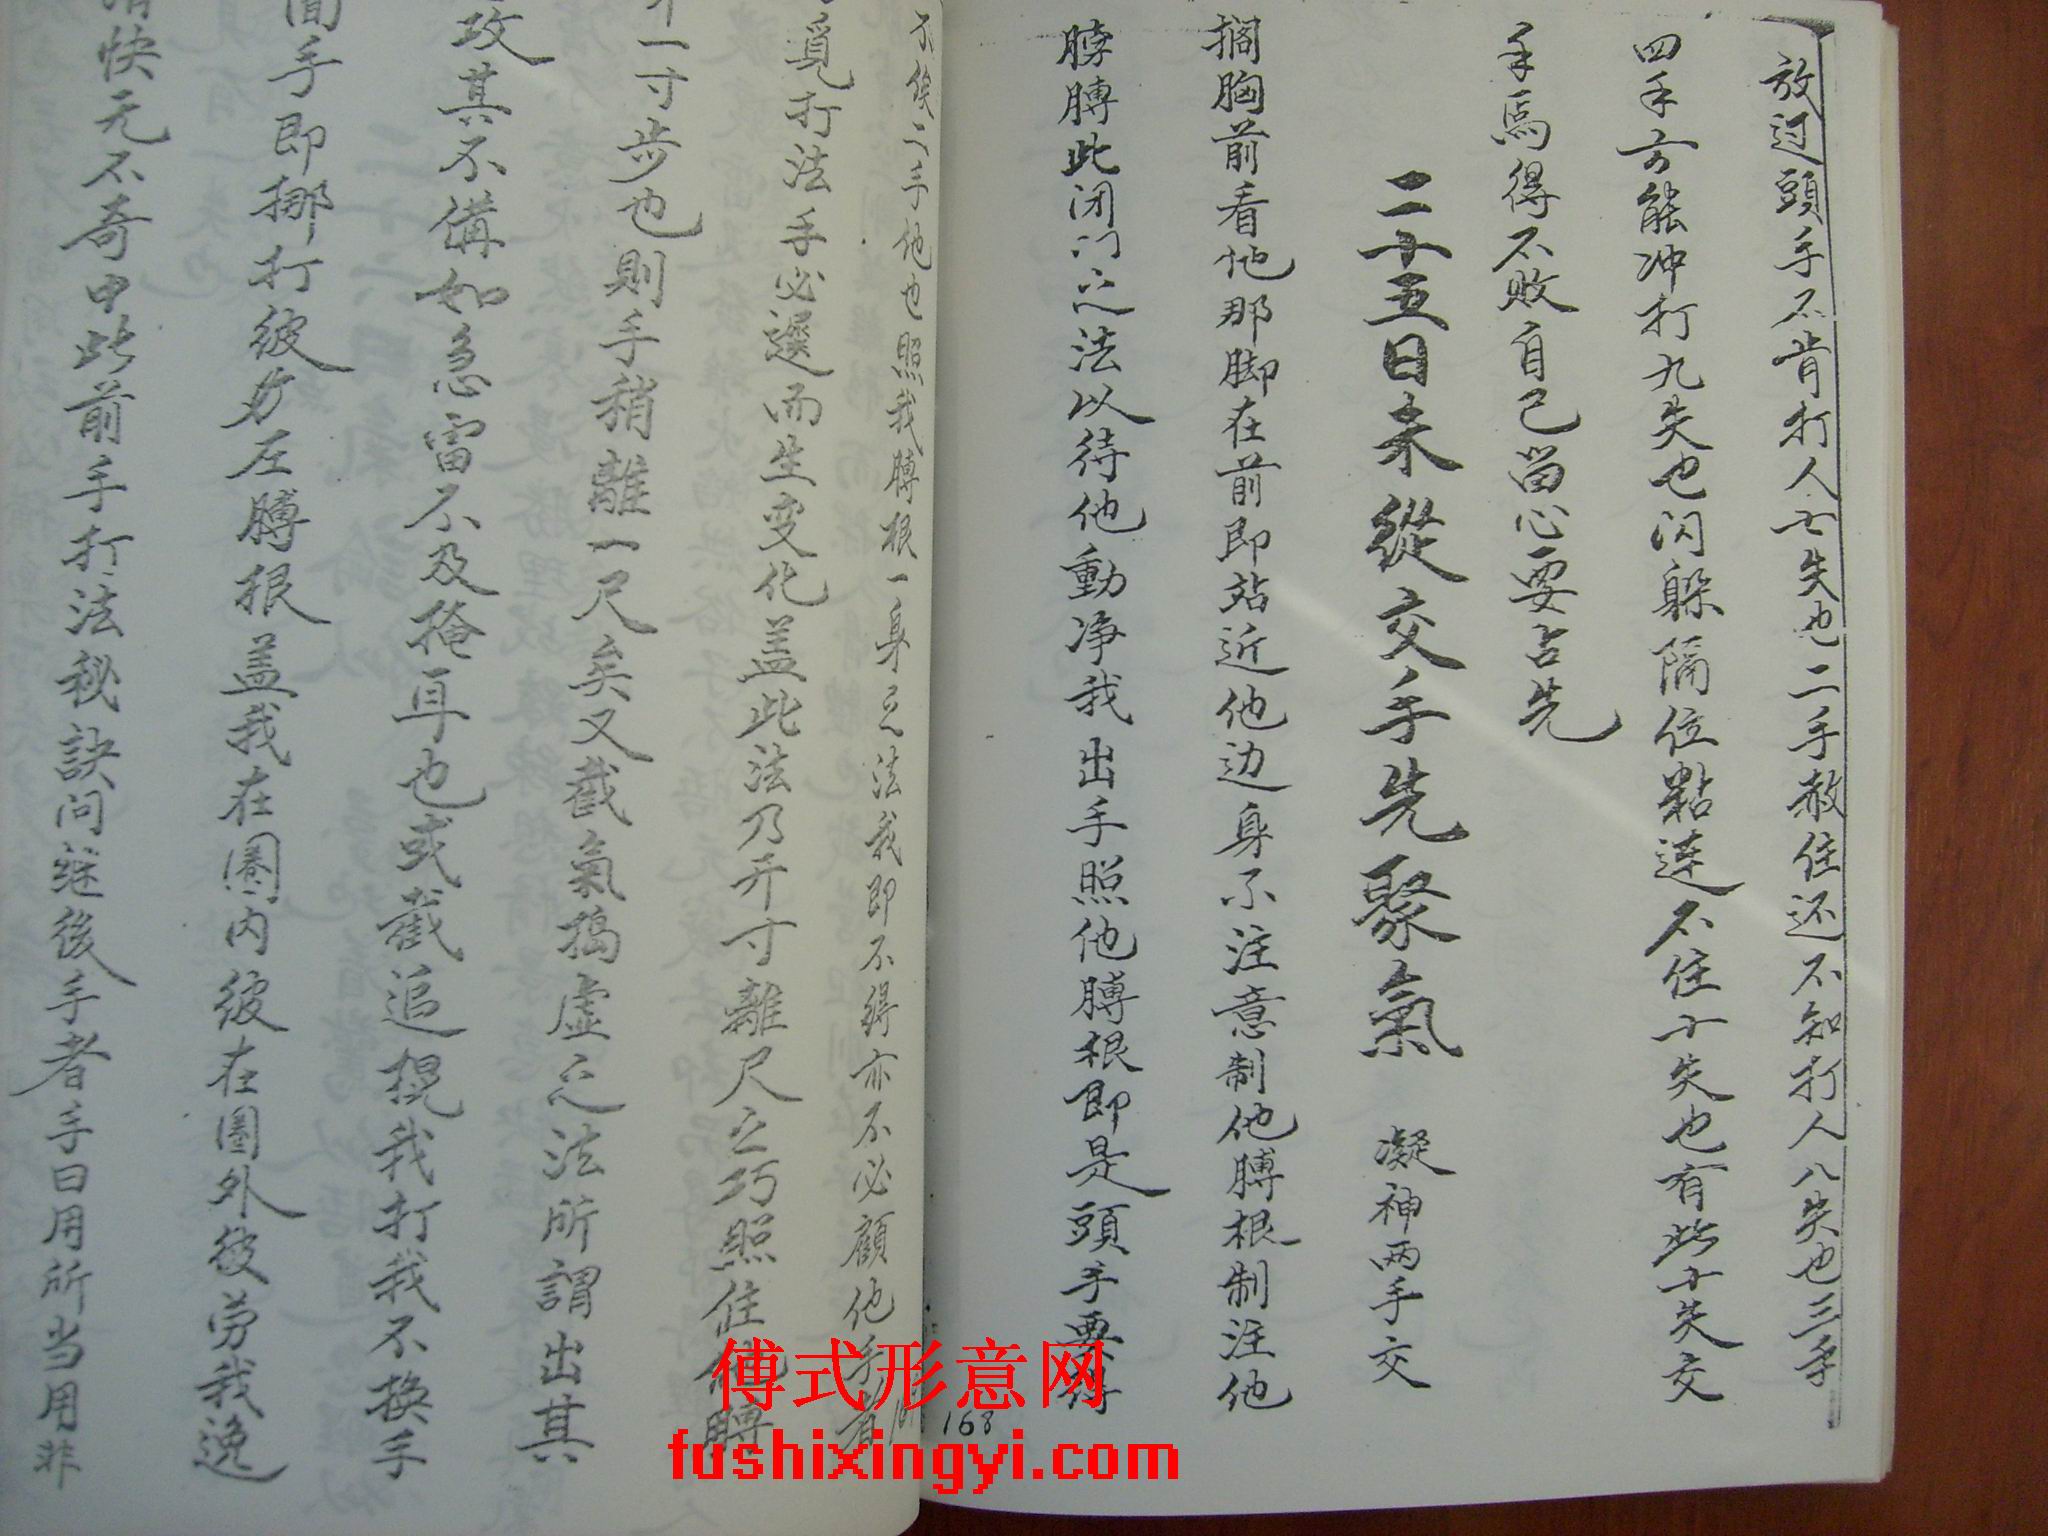 放过頭手不肯打人七失也二手赦住还不知打人八失也三手
四手方能冲打九失也闪躲隔位黏連不住十失也有此十失交
手焉得不敗自己留心要占先
二十五曰未從交手先聚氣 凝神两手交
搁胸前看他那脚在前即站近他边身不注意制他膊根制注他
膊此闭门之法以待他動净我出手照他膊根即是頭手要得
168
不俟二手他也照我膊根一身之法我即不得亦不必顧他手者
覓打法手必選而生变化盖此法乃开寸離尺之巧照住他膊
一寸步也則手稍離一尺矣又截氣搗虚之法所謂出其
攻其不備如急雷不及掩耳也或截追挽我打我不换手
手即挪打彼力左膊根盖我在圈内彼在圈外彼劳我逸
快元不奇中此前手打法秘訣问继後手者手曰用所当用非
傅式形意网
fushixingyi.com